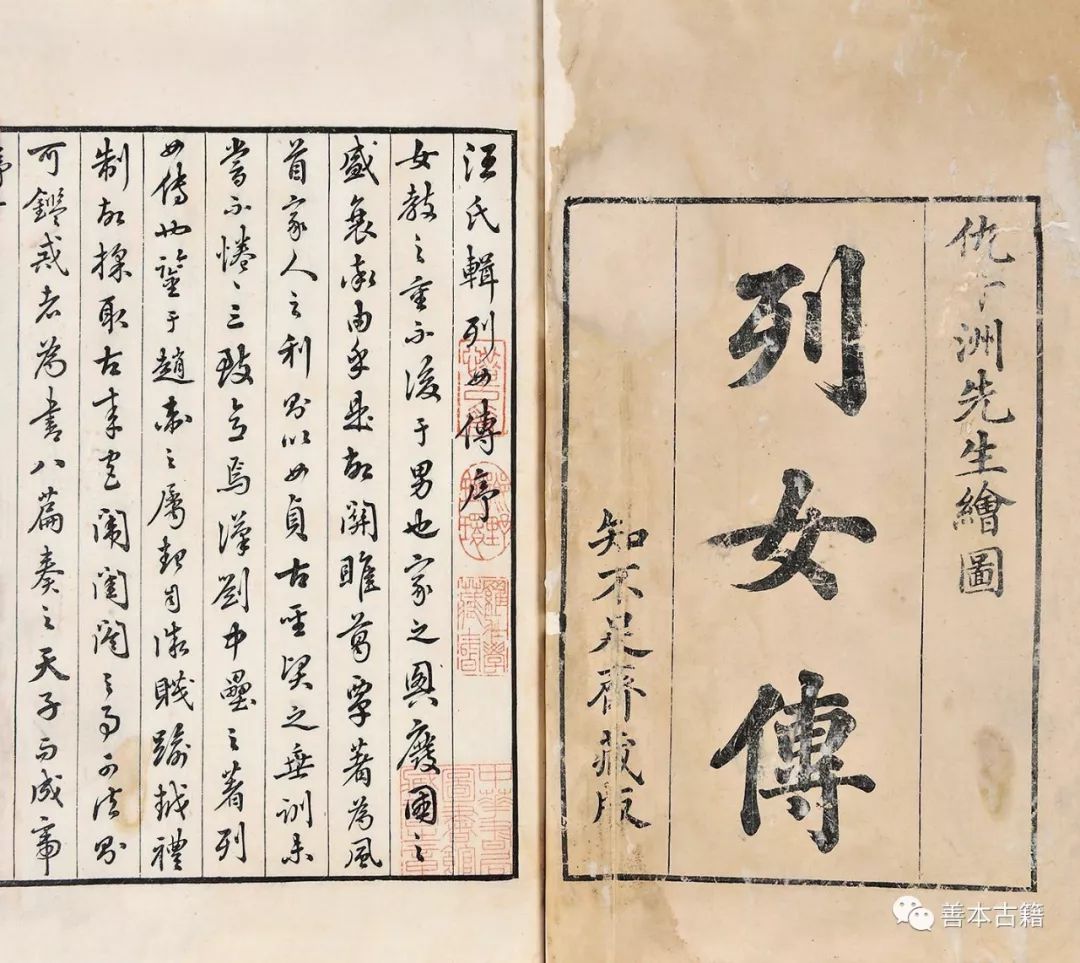 仇十洲先生繪圖
列女傳
知不足齋藏版
汪氏輯列女傳序
女教之重不後于男也家之興廢國之
盛衰率由乎是故關雎葛覃著為風
首家人之利則以女貞古聖賢之垂訓未
嘗不惓〻三致意焉漢劉中壘之著列
女傳也鑒于趙衛之屬起自微賤踰越禮
制故採取古来宮闈閨閫之事可法則
可鑑戒者為書八篇奏之天子而成帝
善本古籍